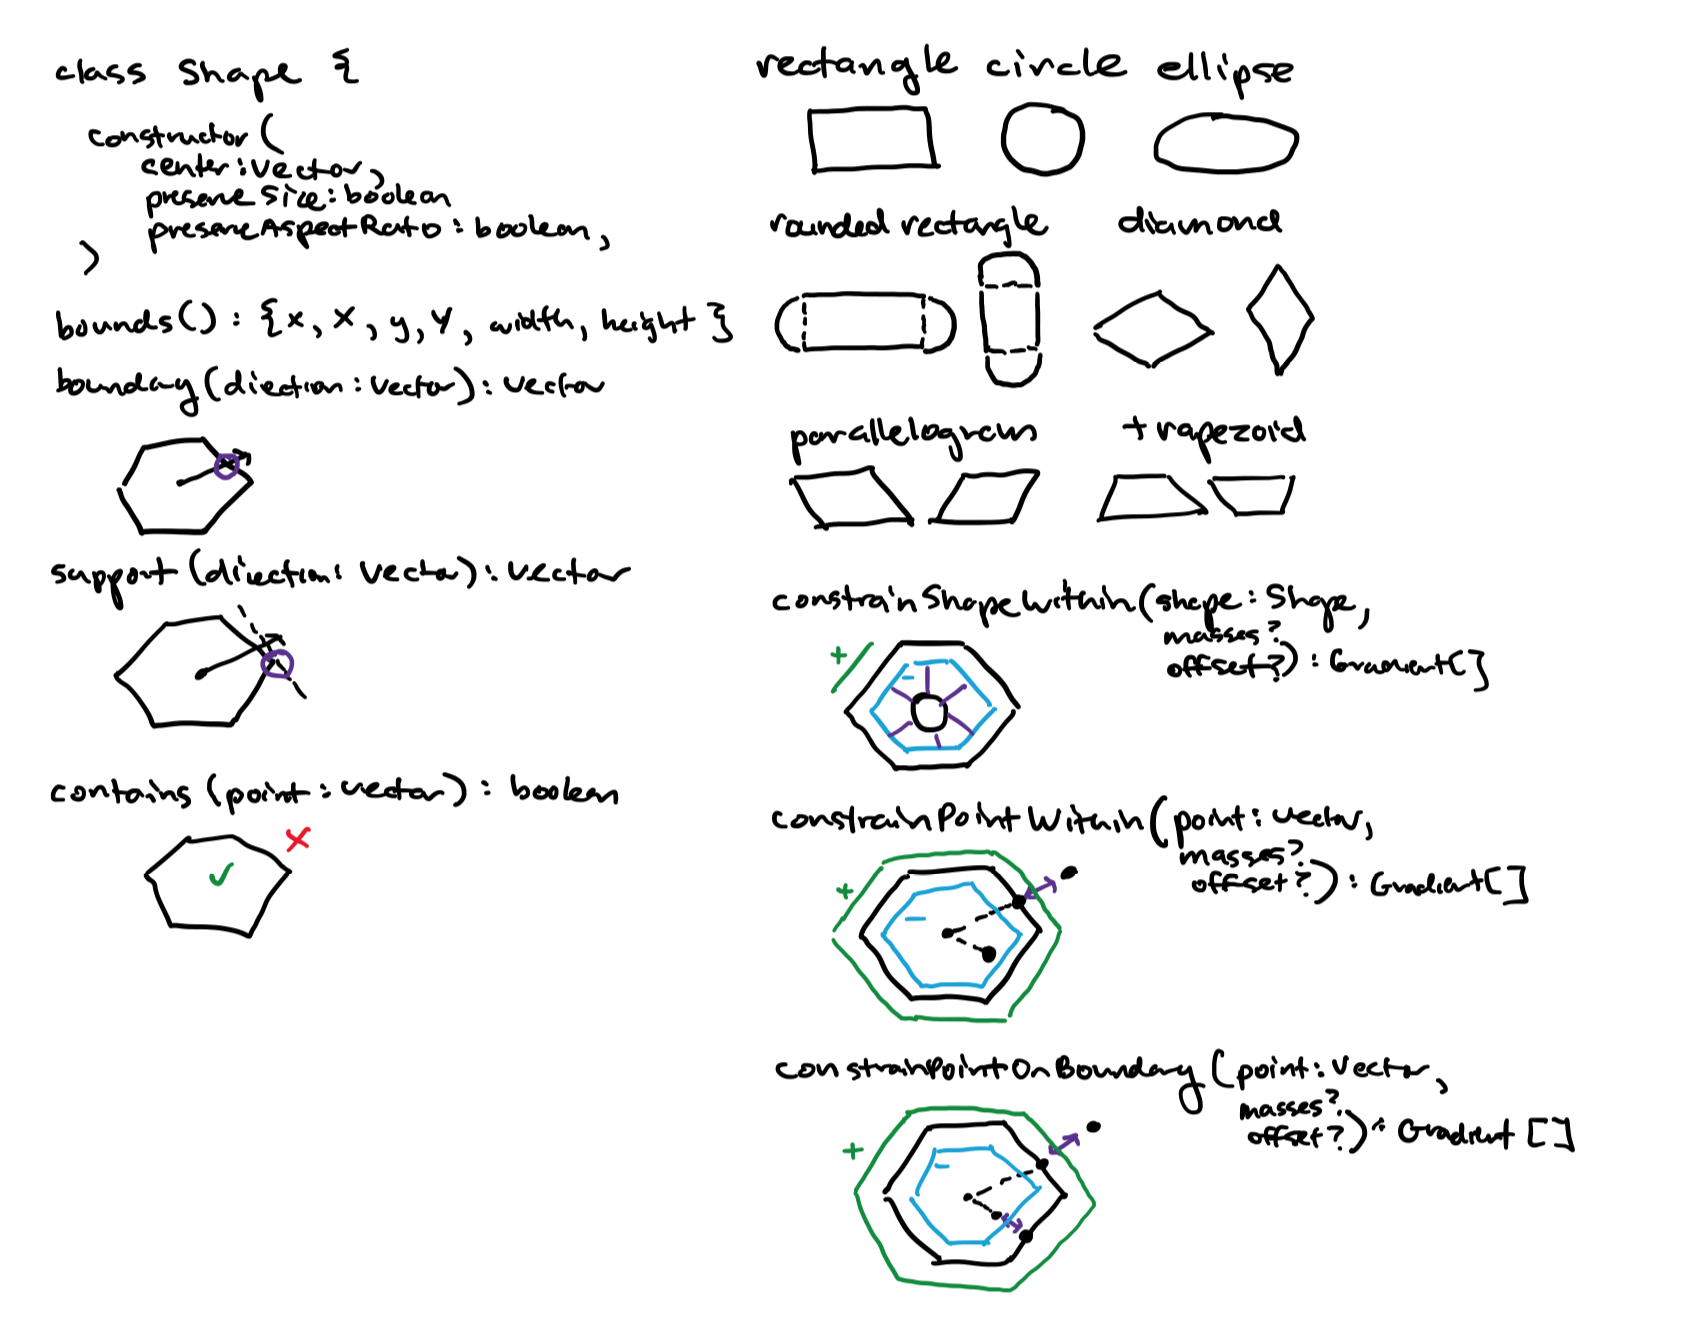 class Shape {
constructor(
center: Vector,
preserveSize: boolean
preserveAspectRatio: boolean,
)
bounds(): {x, X, y, Y, width, height}
boundary(direction: Vector): Vector
support(direction: Vector): Vector
contains(point: vector): boolean
rectangle circle ellipse
rounded rectangle diamond
parallelogram trapezoid
constrainShapeWithin(shape: Shape,
masses?
offset?): Gradient[]
+
-
constrainPointWithin(point: Vector,
masses?
offset?): Gradient[]
+
-
constrainPointOnBoundary(point: Vector,
masses?
offset?): Gradient[]
+
-